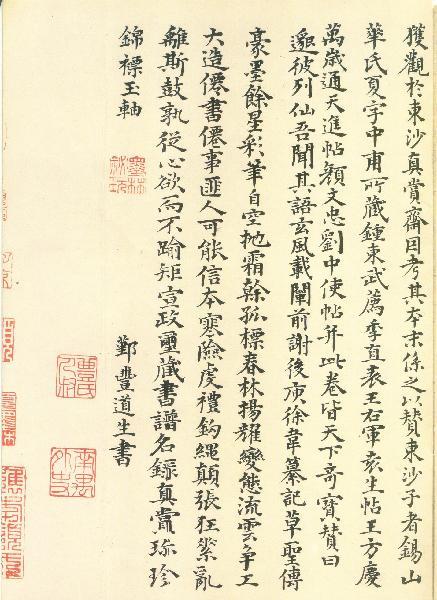 獲觀於東沙真賞齋因考其本末係之以贊東沙子者錫山
華氏夏字中甫所藏鍾東武薦季直表王右軍袁生帖王方慶
萬歲通天進帖顏文忠劉中使帖并此卷皆天下奇寶贊曰
邈彼列仙吾聞其語玄風載闡前謝後庾徐韋纂記草聖傳
豪墨餘星彩筆自空拋霜幹孤標春林揚耀變態流雲爭工
大造僊書僊事匪人可能信本寒險虔禮鉤繩顛張狂縈亂
離斯鼓孰從心欲而不踰矩宣政璽藏書譜名錄真賞珎珍
錦褾玉軸
墨林秘玩
鄞豐道生書
南禺外史